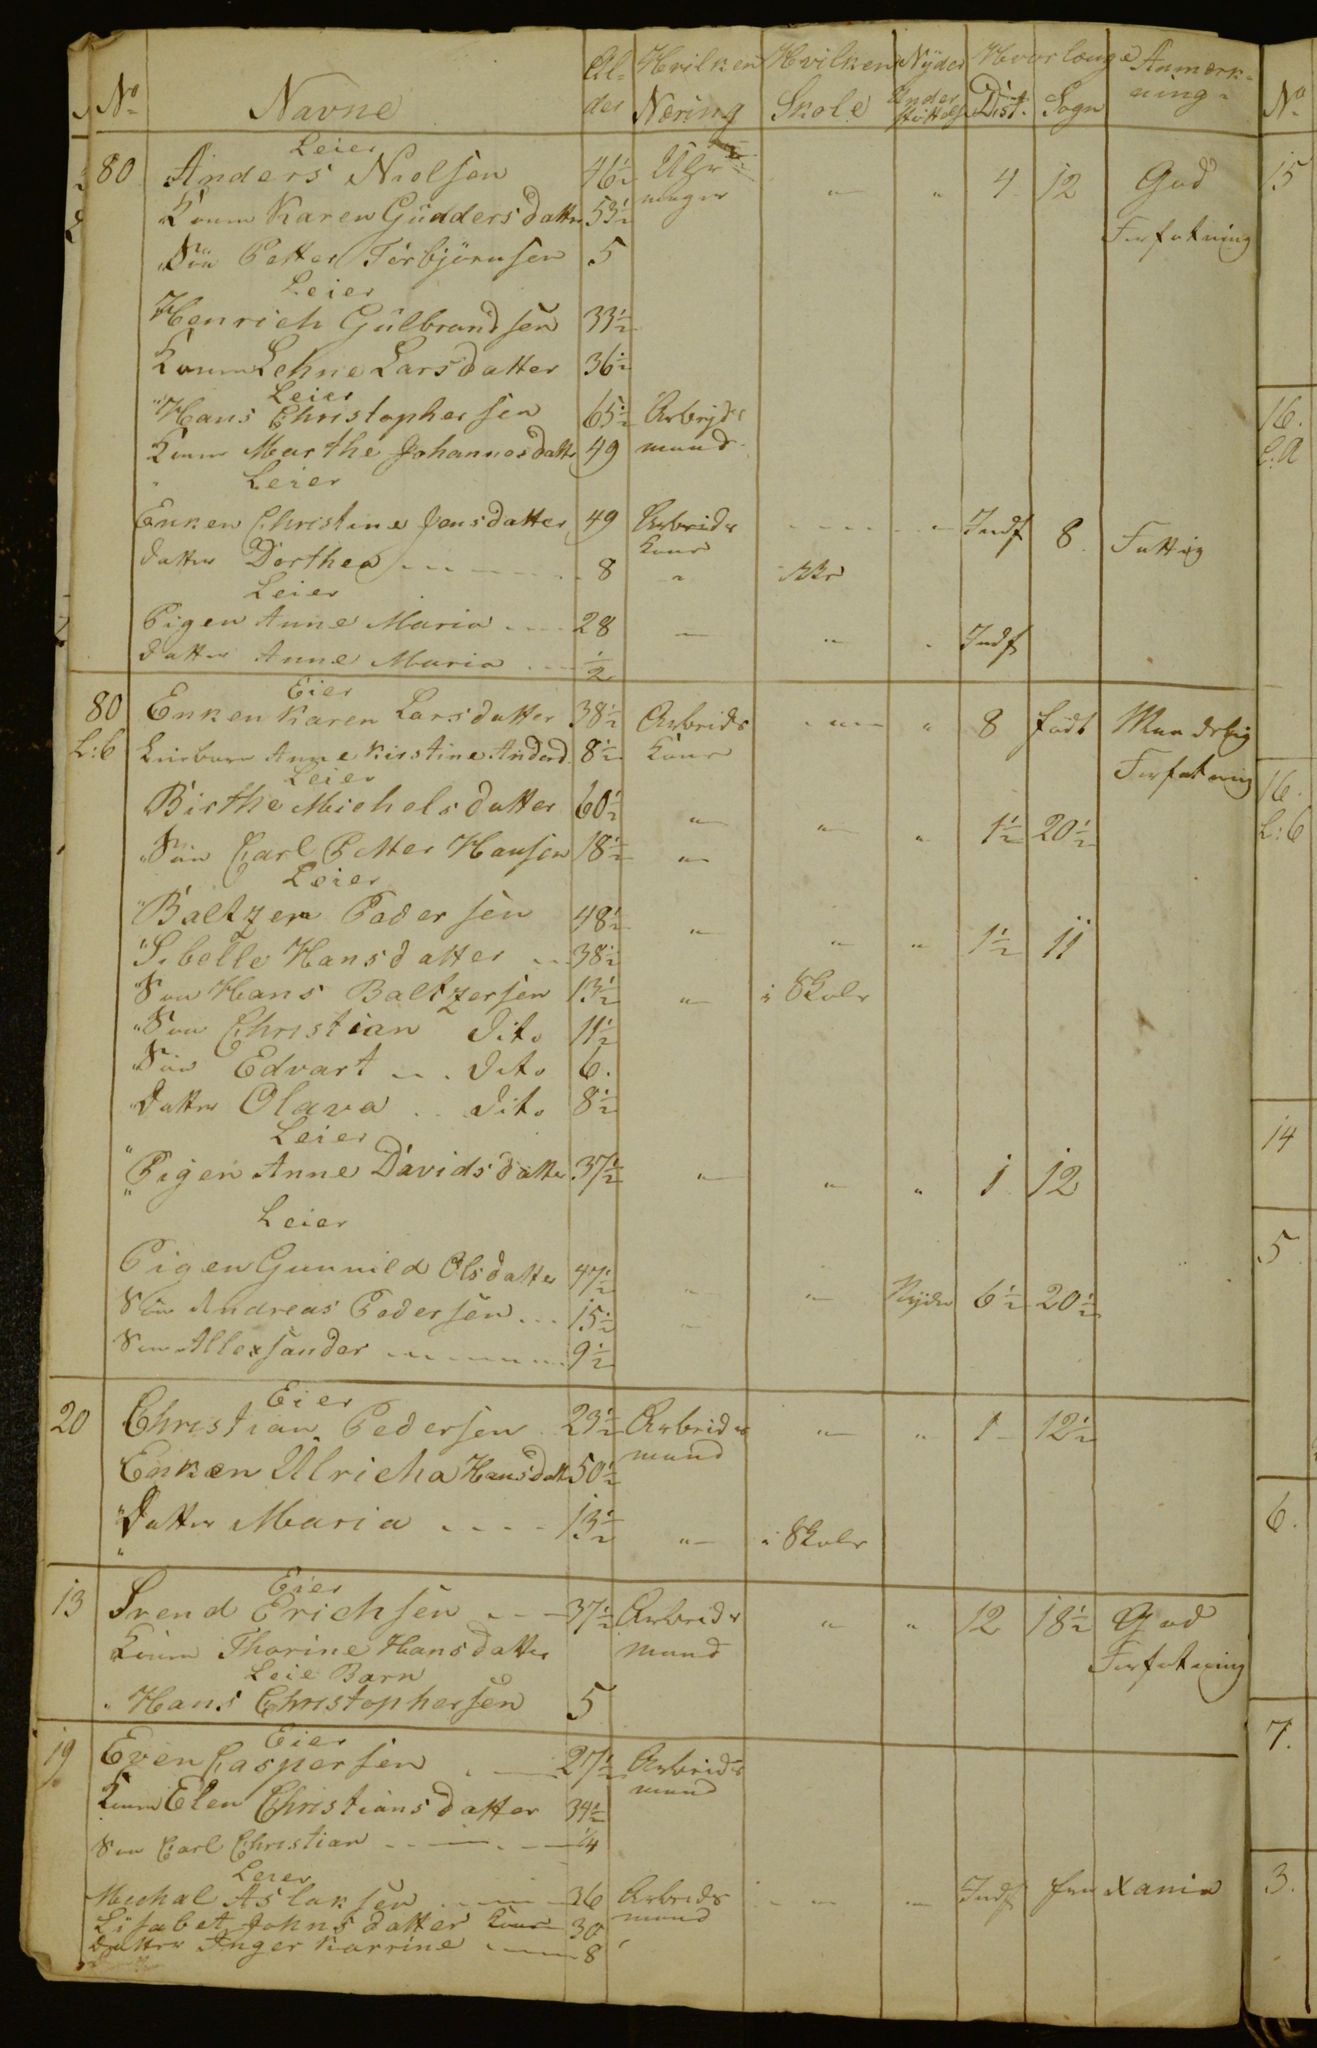 No Navne Alder Hvilken Næring Hvilken Skole Nyder Understøttelse Hvorlænge Dist. Sogn Anmærkning No
Leier
80 Anders Nielsen 46½ 4 12 God 15
Konen Karen Guddersdatter 53½ Forfatning
Søn Petter Torbjörnsen 5
Leier
Henrich Gülbrandsen 33½
Konen Lehne Larsdatter 36½
Leier
Hans Christophersen 65½ Arbejds 16.
Konen Marthe Johannesdatter 49 mand L:A
Leier
Enken Christine Jensdatter 49 Arbeids Indf 8 Fattig
datter Dorthea 8 Kone
Leier
Pigen Anne Maria 28 Indf
datter Anne Maria ½
Eier
80 Enken Karen Larsdatter 38½ Arbeids " 8 født Maadelig
L:b Leiebarn Anne Kirstine Andersd. 8½ Kone Forfatning 16.
Leier
Birthe Michelsdatter 60½ " " " 1½ 20½ L:b
Søn Carl Petter Hansen 18½ "
Leier
Baltzer Pedersen 48½ " " " 1½ 11
Sibelle Hansdatter 38½
Søn Hans Baltzersen 13½ " i Skole
Søn Christian dito 11½
Søn Edvart dito 6.
datter Olava dito 8½ 14
Leier
Pigen Anne Davidsdatter 37½ " " " 1 12
Leier 5
Pigen Gunnild Olsdatter 47½ " " Nyder 6½ 20½
Søn Andreas Pedersen 15½ "
Søn Allexsander 9½
Eier
20 Christian Pedersen 23½ Arbeids " " 1 12½
Enken Ulricha Hansdatt 50½ mand
Datter Maria 13½ " i Skole 6.
Eier
13 Svend Erichsen 37½ Arbeids " " 12 18½ God
Konen Thorine Hansdatter mand Forfatning
Leie Barn
Hans Christophersen 5
Eier 7.
19 Even Caspersen 27½ Arbeids
Konen Elen Christiansdatter 34½ mand
Søn Carl Christian ¼
Leier
Michal Aslaksen 36 Arbeids Indf fra Xania 3.
Lisabet Johnsdatter Kone 30 mand
datter Inger Karrine 8